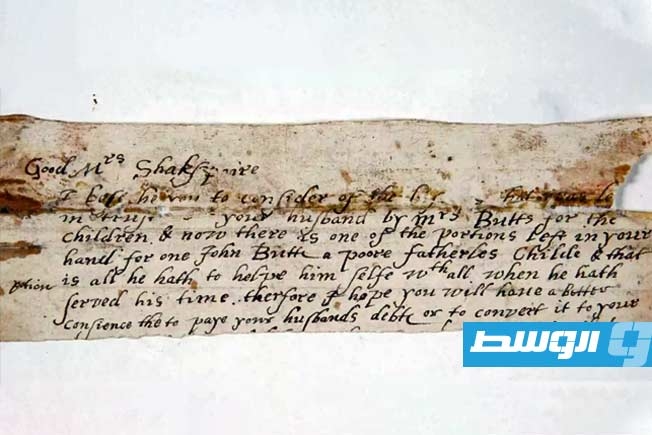 Good Mrs Shakspaire
I bese he you to consider of the that was le
in trust your husband by Mrs Butts for the
Children & now there is one of the portions left in your
hand for one John Butte a poore fatherles Childe & that
is all he hath to helpe him selfe wth all when he hath
served his time. therfore I hope you will have a better
Consience the to paye your husbands debte or to convert it to your
ption
الوسط